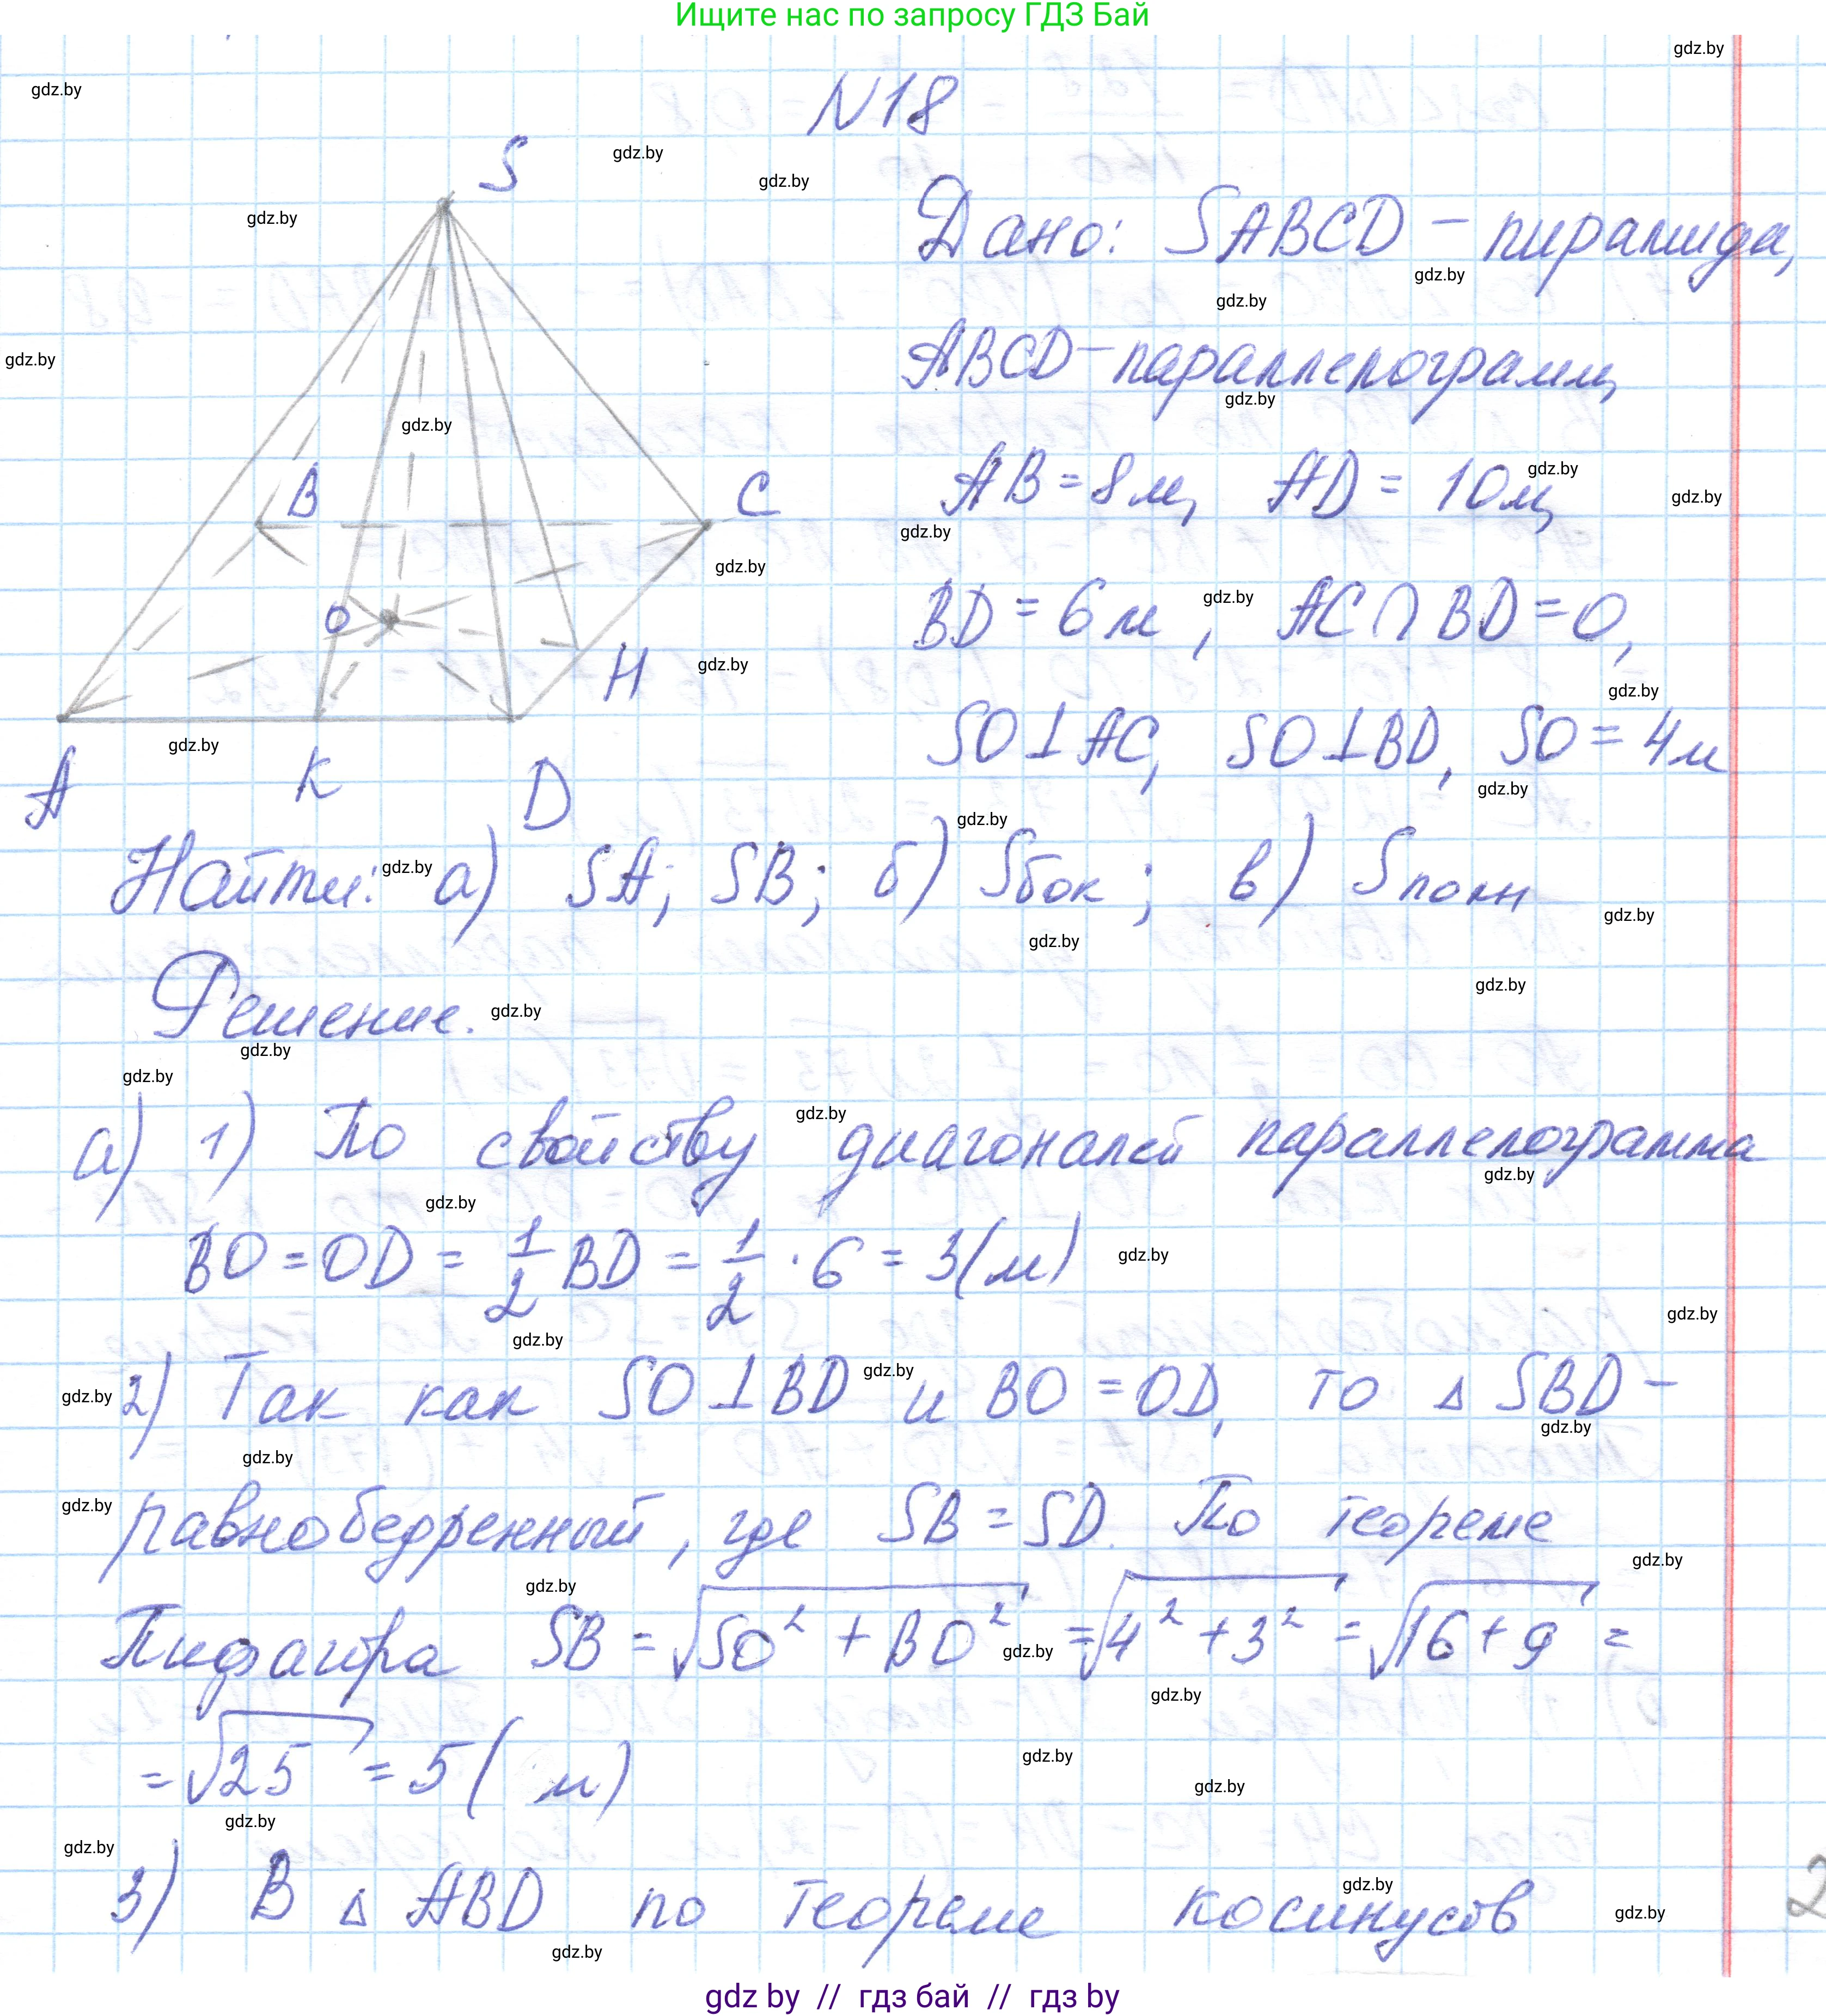 Ищите нас по запросу ГДЗ Бай
N18
S
B
C
O
H
A
K
D
Дано: SABCD – пирамида,
ABCD – параллелограмм,
AB = 8 м, AD = 10 м,
BD = 6 м, AC ∩ BD = O,
SO ⊥ AC, SO ⊥ BD, SO = 4 м
Найти: а) SA; SB; б) Sбок; в) Sполн
Решение.
а) 1) По свойству диагоналей параллелограмма
BO = OD = 1/2 BD = 1/2 · 6 = 3 (м)
2) Так как SO ⊥ BD и BO = OD, то △ SBD –
равнобедренный, где SB = SD. По теореме
Пифагора SB = √(SO² + BO²) = √(4² + 3²) = √(16 + 9) =
= √25 = 5 ( м)
3) В △ ABD по теореме косинусов
2
gdz by // гдз бай // гдз by
gdz.by